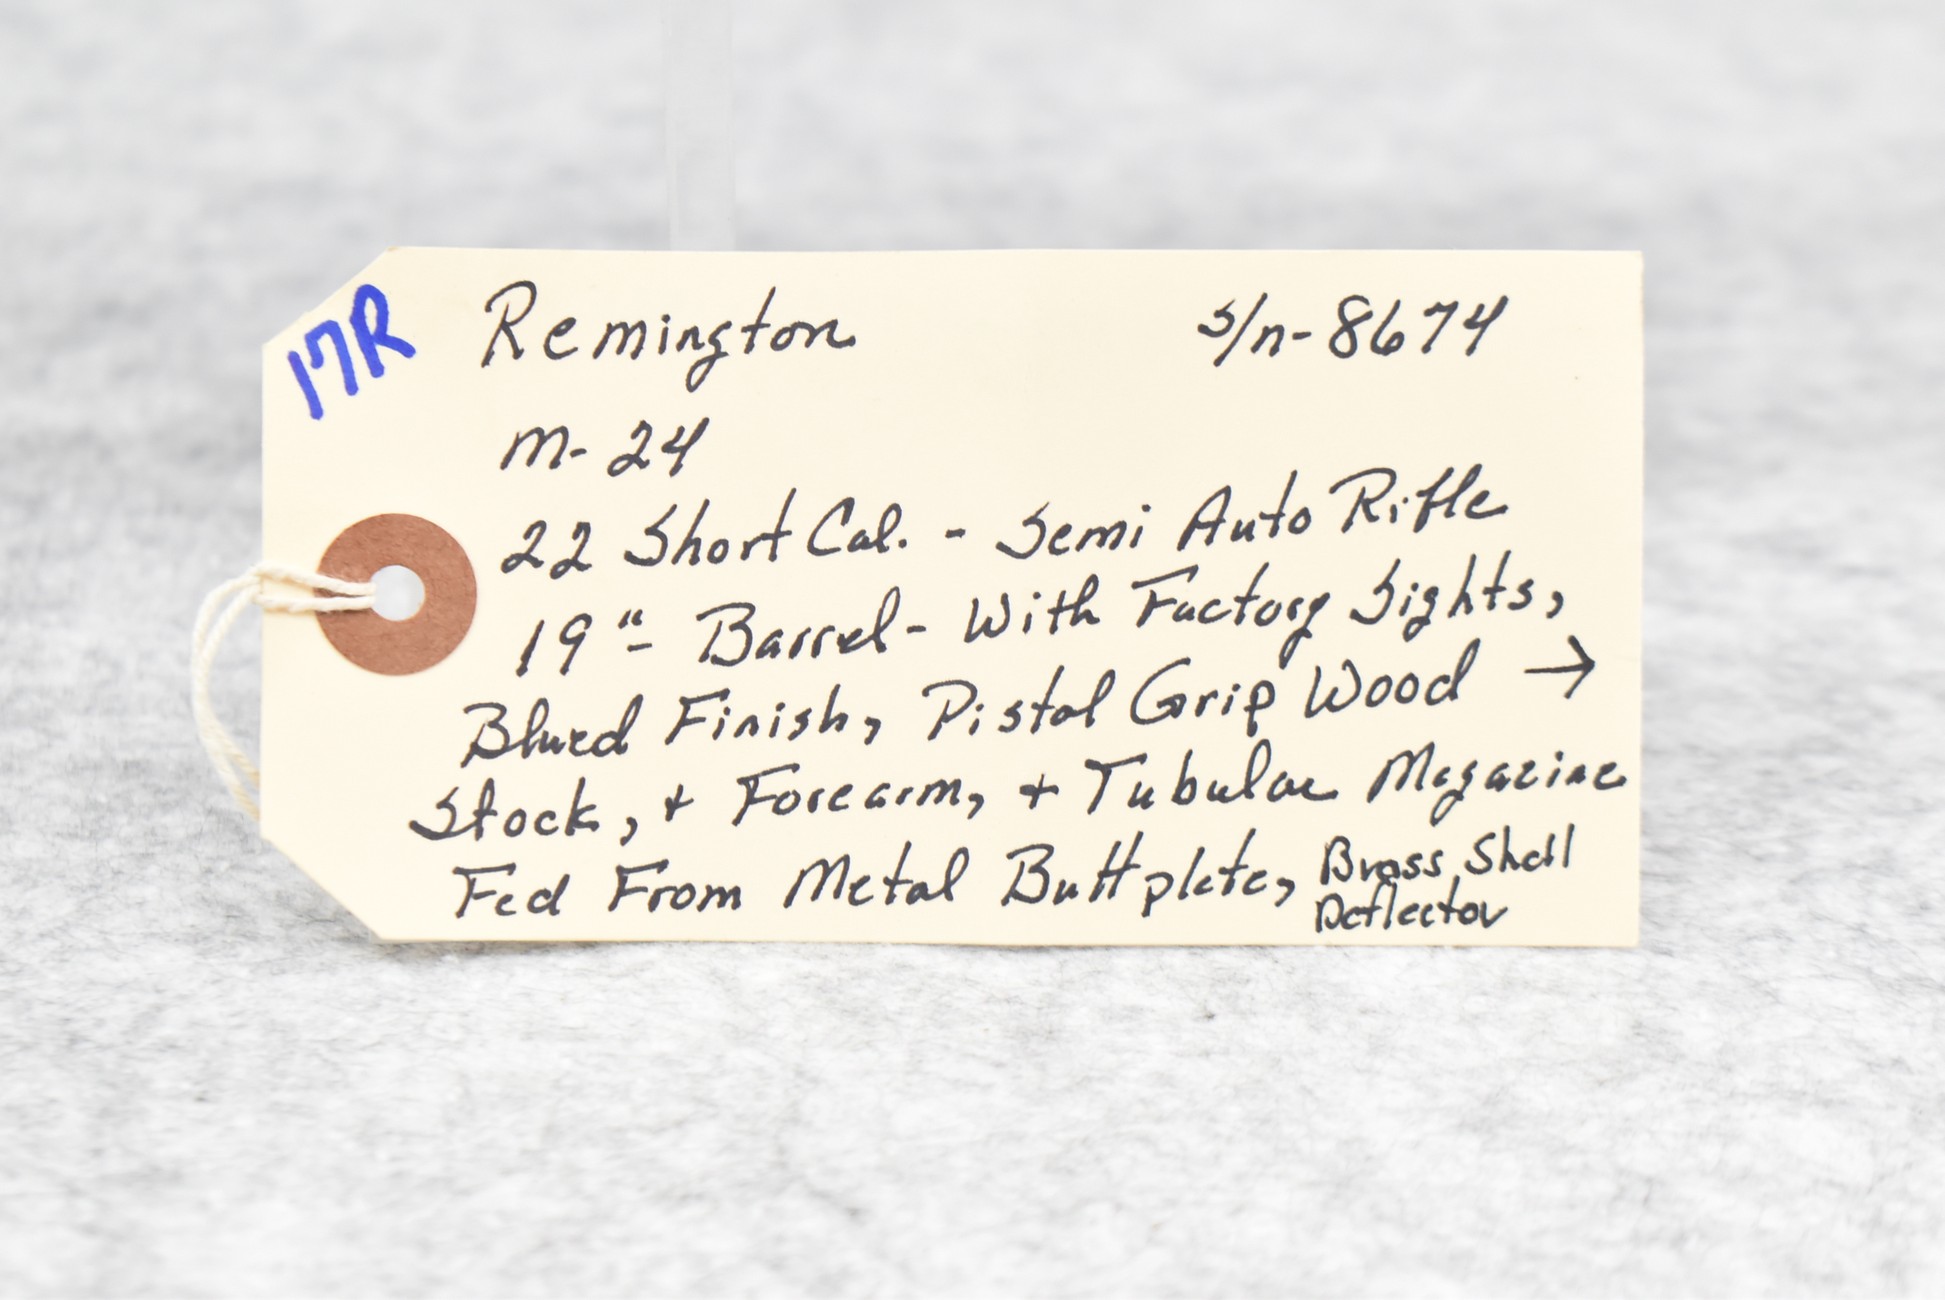 17R
Remington s/n-8674
M-24
22 Short Cal. - Semi Auto Rifle
19"- Barrel - With Factory Sights,
Blued Finish, Pistol Grip Wood →
Stock, + Forearm, + Tubular Magazine
Fed From Metal Buttplate, Brass Shell
Deflector